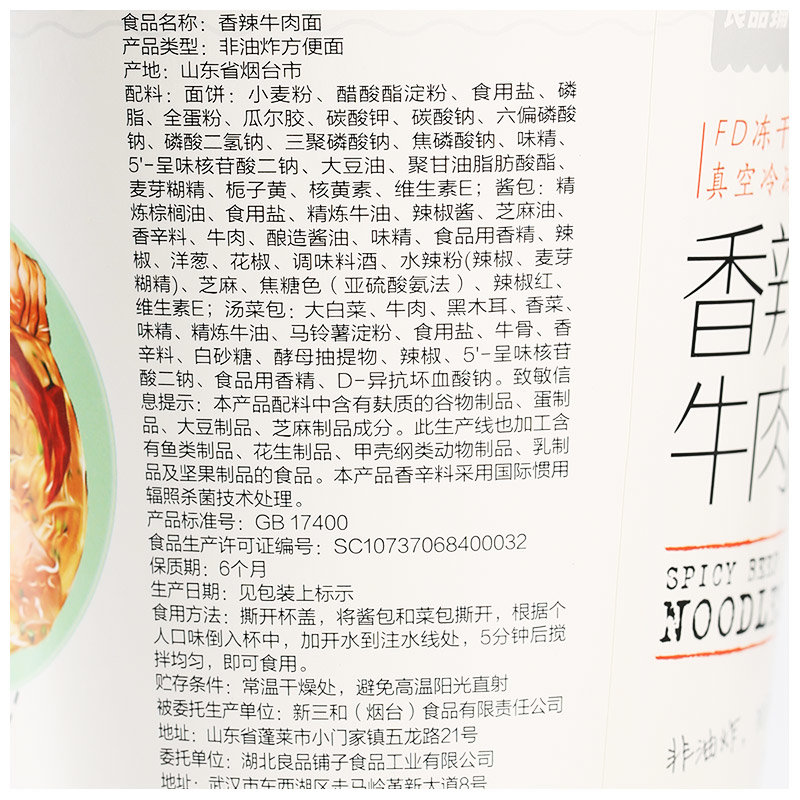 食品名称：香辣牛肉面
产品类型：非油炸方便面
产地：山东省烟台市
配料：面饼：小麦粉、醋酸酯淀粉、食用盐、磷
脂、全蛋粉、瓜尔胶、碳酸钾、碳酸钠、六偏磷酸
钠、磷酸二氢钠、三聚磷酸钠、焦磷酸钠、味精、
5'-呈味核苷酸二钠、大豆油、聚甘油脂肪酸酯、
麦芽糊精、栀子黄、核黄素、维生素E；酱包：精
炼棕榈油、食用盐、精炼牛油、辣椒酱、芝麻油、
香辛料、牛肉、酿造酱油、味精、食品用香精、辣
椒、洋葱、花椒、调味料酒、水辣粉(辣椒、麦芽
糊精)、芝麻、焦糖色（亚硫酸氨法）、辣椒红、
维生素E；汤菜包：大白菜、牛肉、黑木耳、香菜、
味精、精炼牛油、马铃薯淀粉、食用盐、牛骨、香
辛料、白砂糖、酵母抽提物、辣椒、5'-呈味核苷
酸二钠、食品用香精、D-异抗坏血酸钠。致敏信
息提示：本产品配料中含有麸质的谷物制品、蛋制
品、大豆制品、芝麻制品成分。此生产线也加工含
有鱼类制品、花生制品、甲壳纲类动物制品、乳制
品及坚果制品的食品。本产品香辛料采用国际惯用
辐照杀菌技术处理。
产品标准号：GB 17400
食品生产许可证编号：SC10737068400032
保质期：6个月
生产日期：见包装上标示
食用方法：撕开杯盖，将酱包和菜包撕开，根据个
人口味倒入杯中，加开水到注水线处，5分钟后搅
拌均匀，即可食用。
贮存条件：常温干燥处，避免高温阳光直射
被委托生产单位：新三和（烟台）食品有限责任公司
地址：山东省蓬莱市小门家镇五龙路21号
委托单位：湖北良品铺子食品工业有限公司
地址：武汉市东西湖区走马岭革新大道8号
良品铺
FD冻干
真空冷冻
香辣
牛肉
SPICY BEEF
NOODLE
非油炸